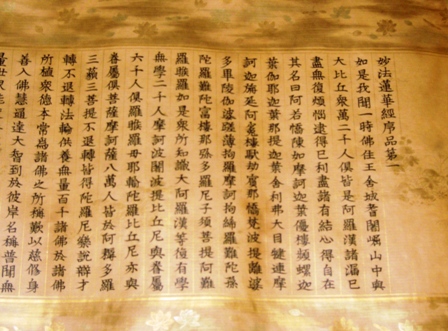 妙法蓮華經序品第一
如是我聞一時佛住王舍城耆闍崛山中與
大比丘衆萬二千人俱皆是阿羅漢諸漏已
盡無復煩惱逮得已利盡諸有結心得自在
其名曰阿若憍陳如摩訶迦葉優樓頻螺迦
葉伽耶迦葉那提迦葉舍利弗大目犍連摩
訶迦旃延阿㝹樓馱劫賓那憍梵波提離婆
多畢陵伽婆蹉薄拘羅摩訶拘絺羅難陀孫
陀羅難陀富樓那彌多羅尼子須菩提阿難
羅睺羅如是衆所知識大阿羅漢等復有學
無學二千人摩訶波闍波提比丘尼與眷屬
六千人俱羅睺羅母耶輸陀羅比丘尼亦與
眷屬俱菩薩摩訶薩八萬人皆於阿耨多羅
三藐三菩提不退轉皆得陀羅尼樂說辯才
轉不退轉法輪供養無量百千諸佛於諸佛
所植衆德本常爲諸佛之所稱歎以慈修身
善入佛慧通達大智到於彼岸名稱普聞無
量世界能